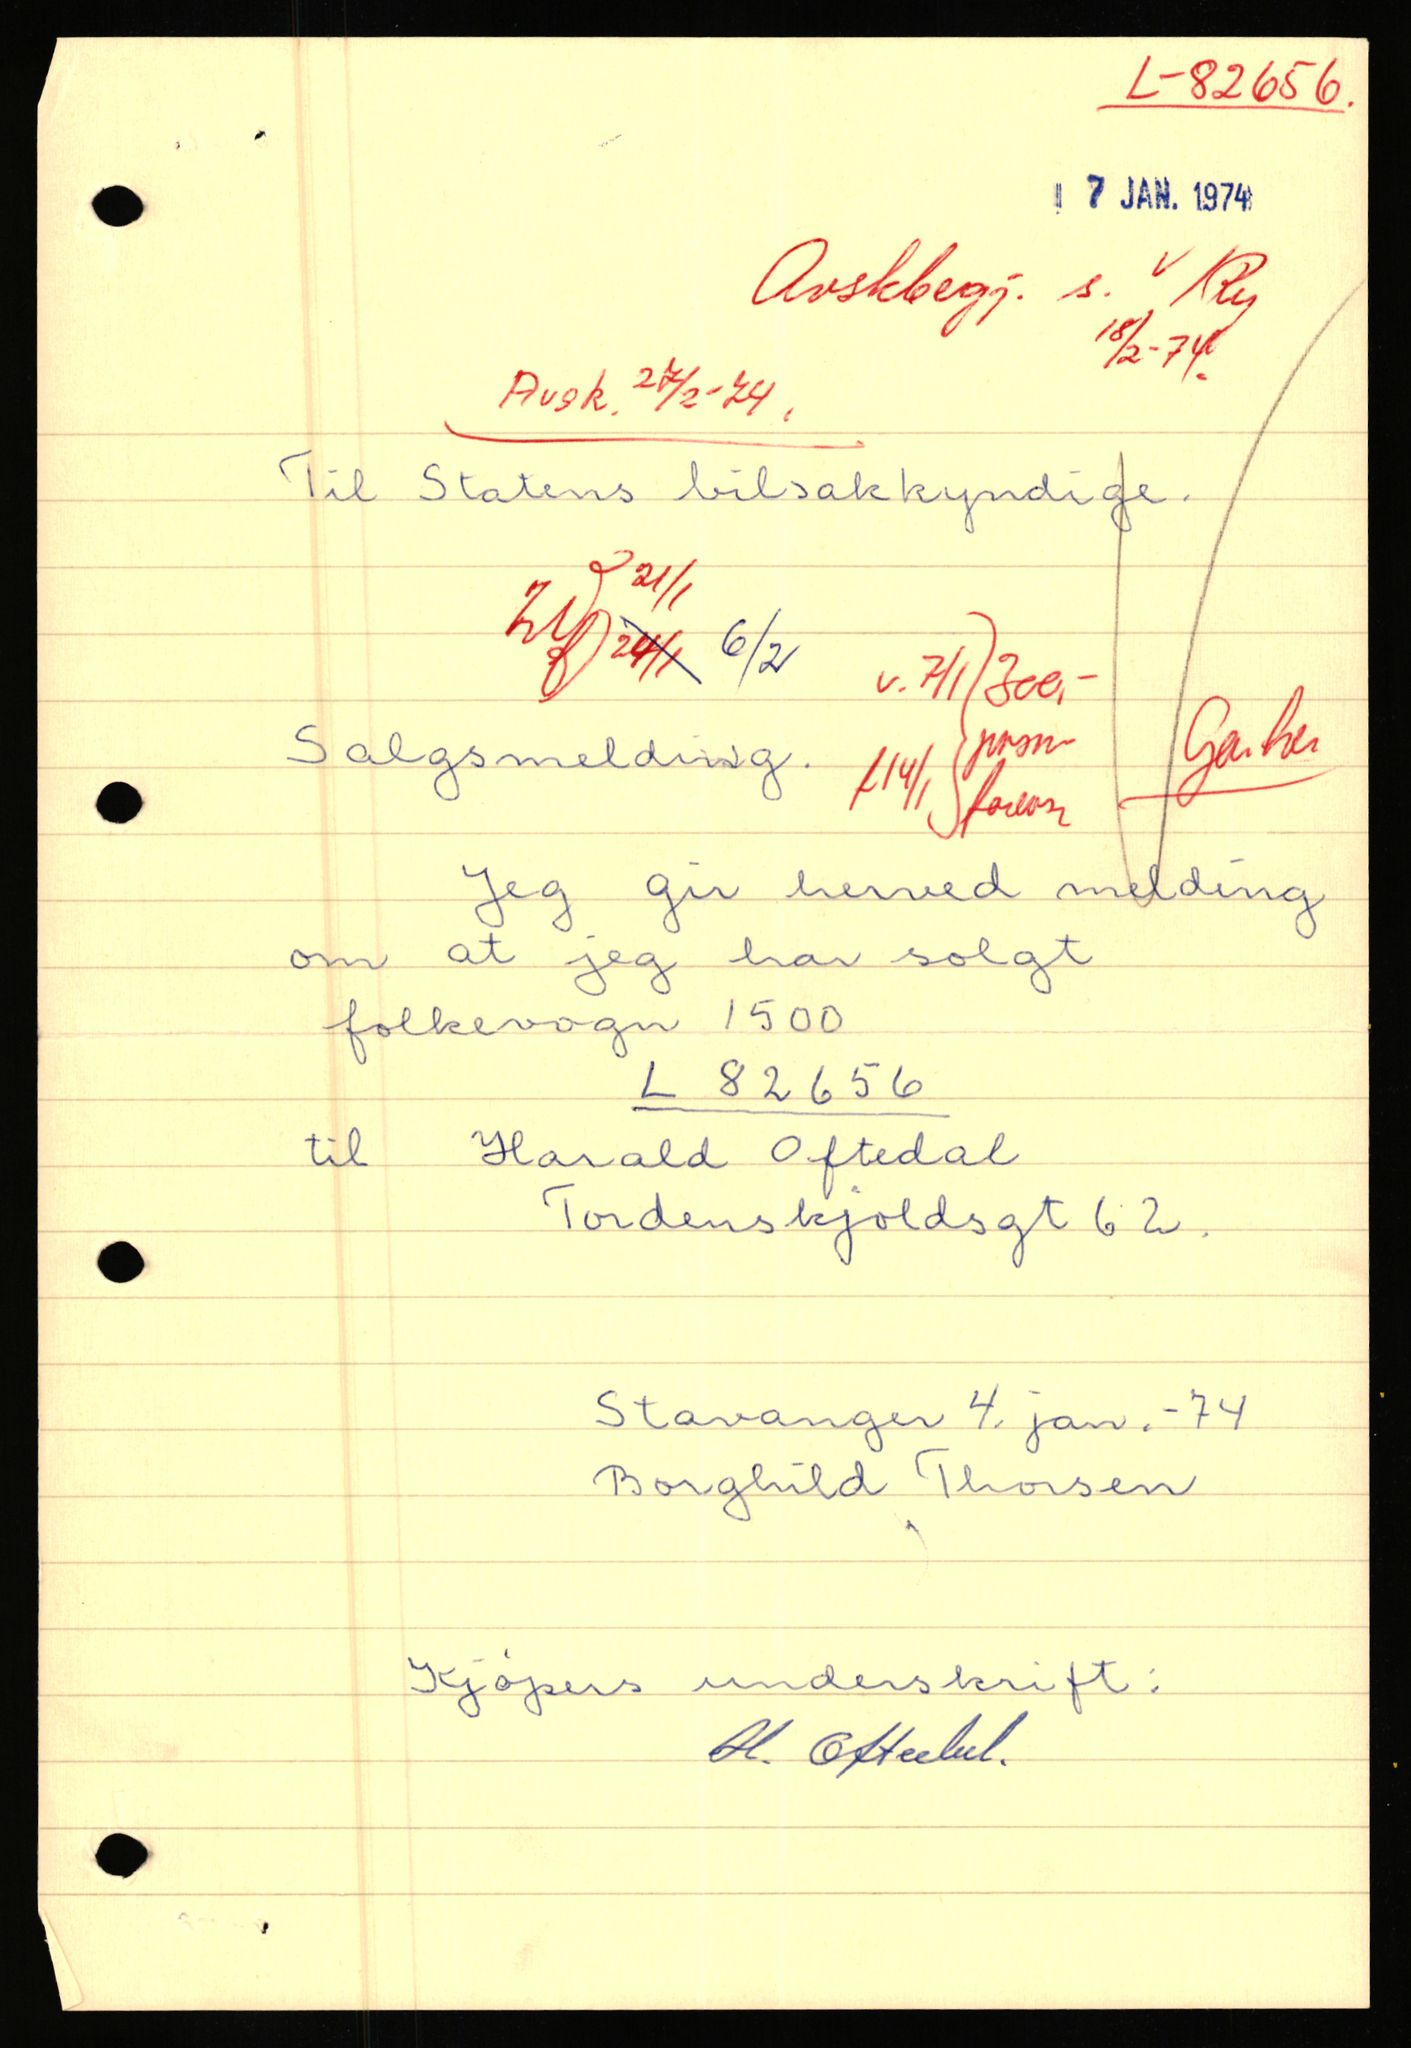 L-82656.
7 JAN. 1974
Avskbegj. s.
18/2-74.
Avsk. 27/2-74.
Til Statens bilsakkyndige.
21/1
24/1 6/2
v. 7/1
Salgsmelding.
f 14/1
Jeg gir herved melding
om at jeg har solgt
folkevogn 1500
L 82656
til Harald Oftedal
Tordenskjoldsgt 62.
Stavanger 4. jan. -74
Borghild Thorsen
Kjøpers underskrift:
H. Oftedal.